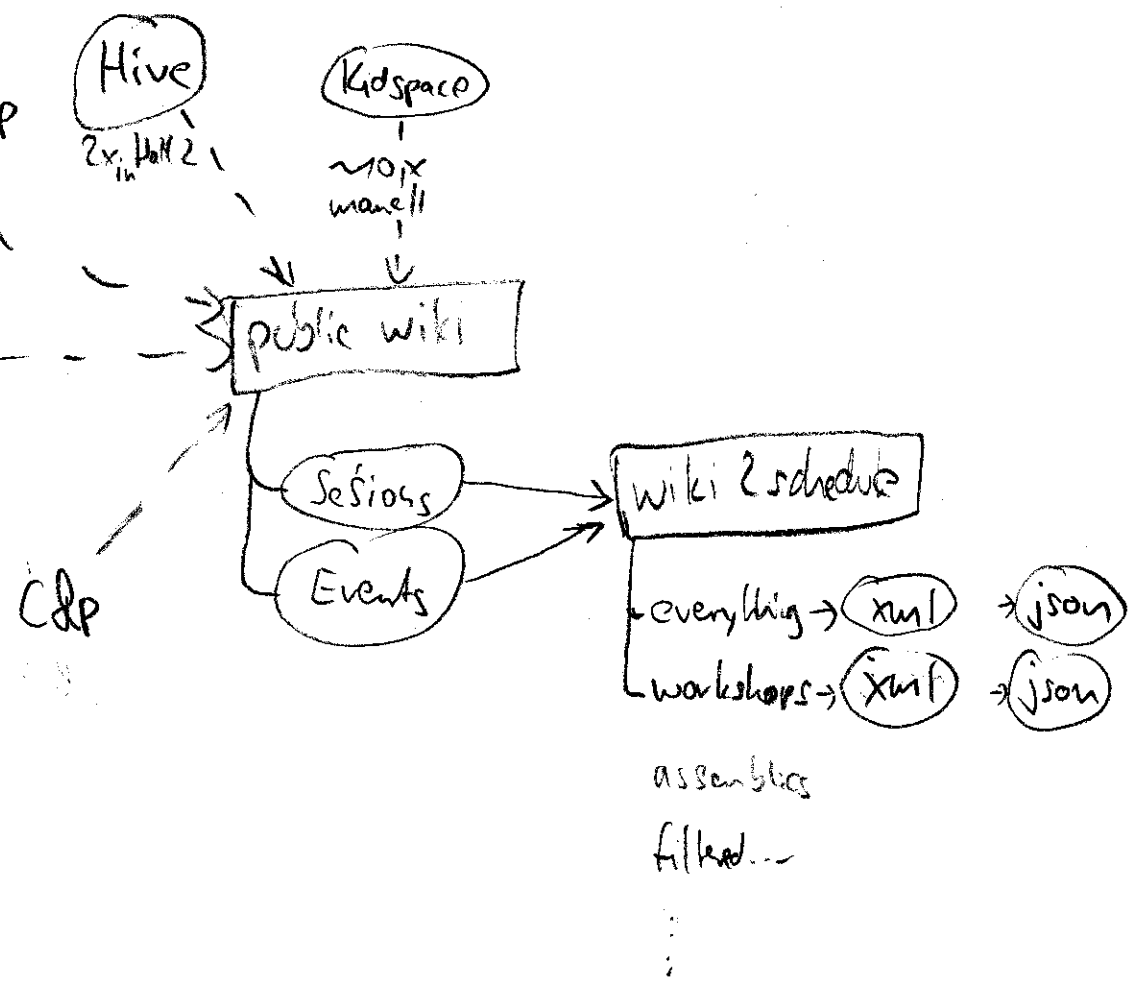 Hive
Kidspace
p
2x in Hall 2
~10x
manell
public wiki
Sesions
Events
wiki 2 schedule
C&p
everything → xml → json
workshops → xml → json
assemblies
filtered...